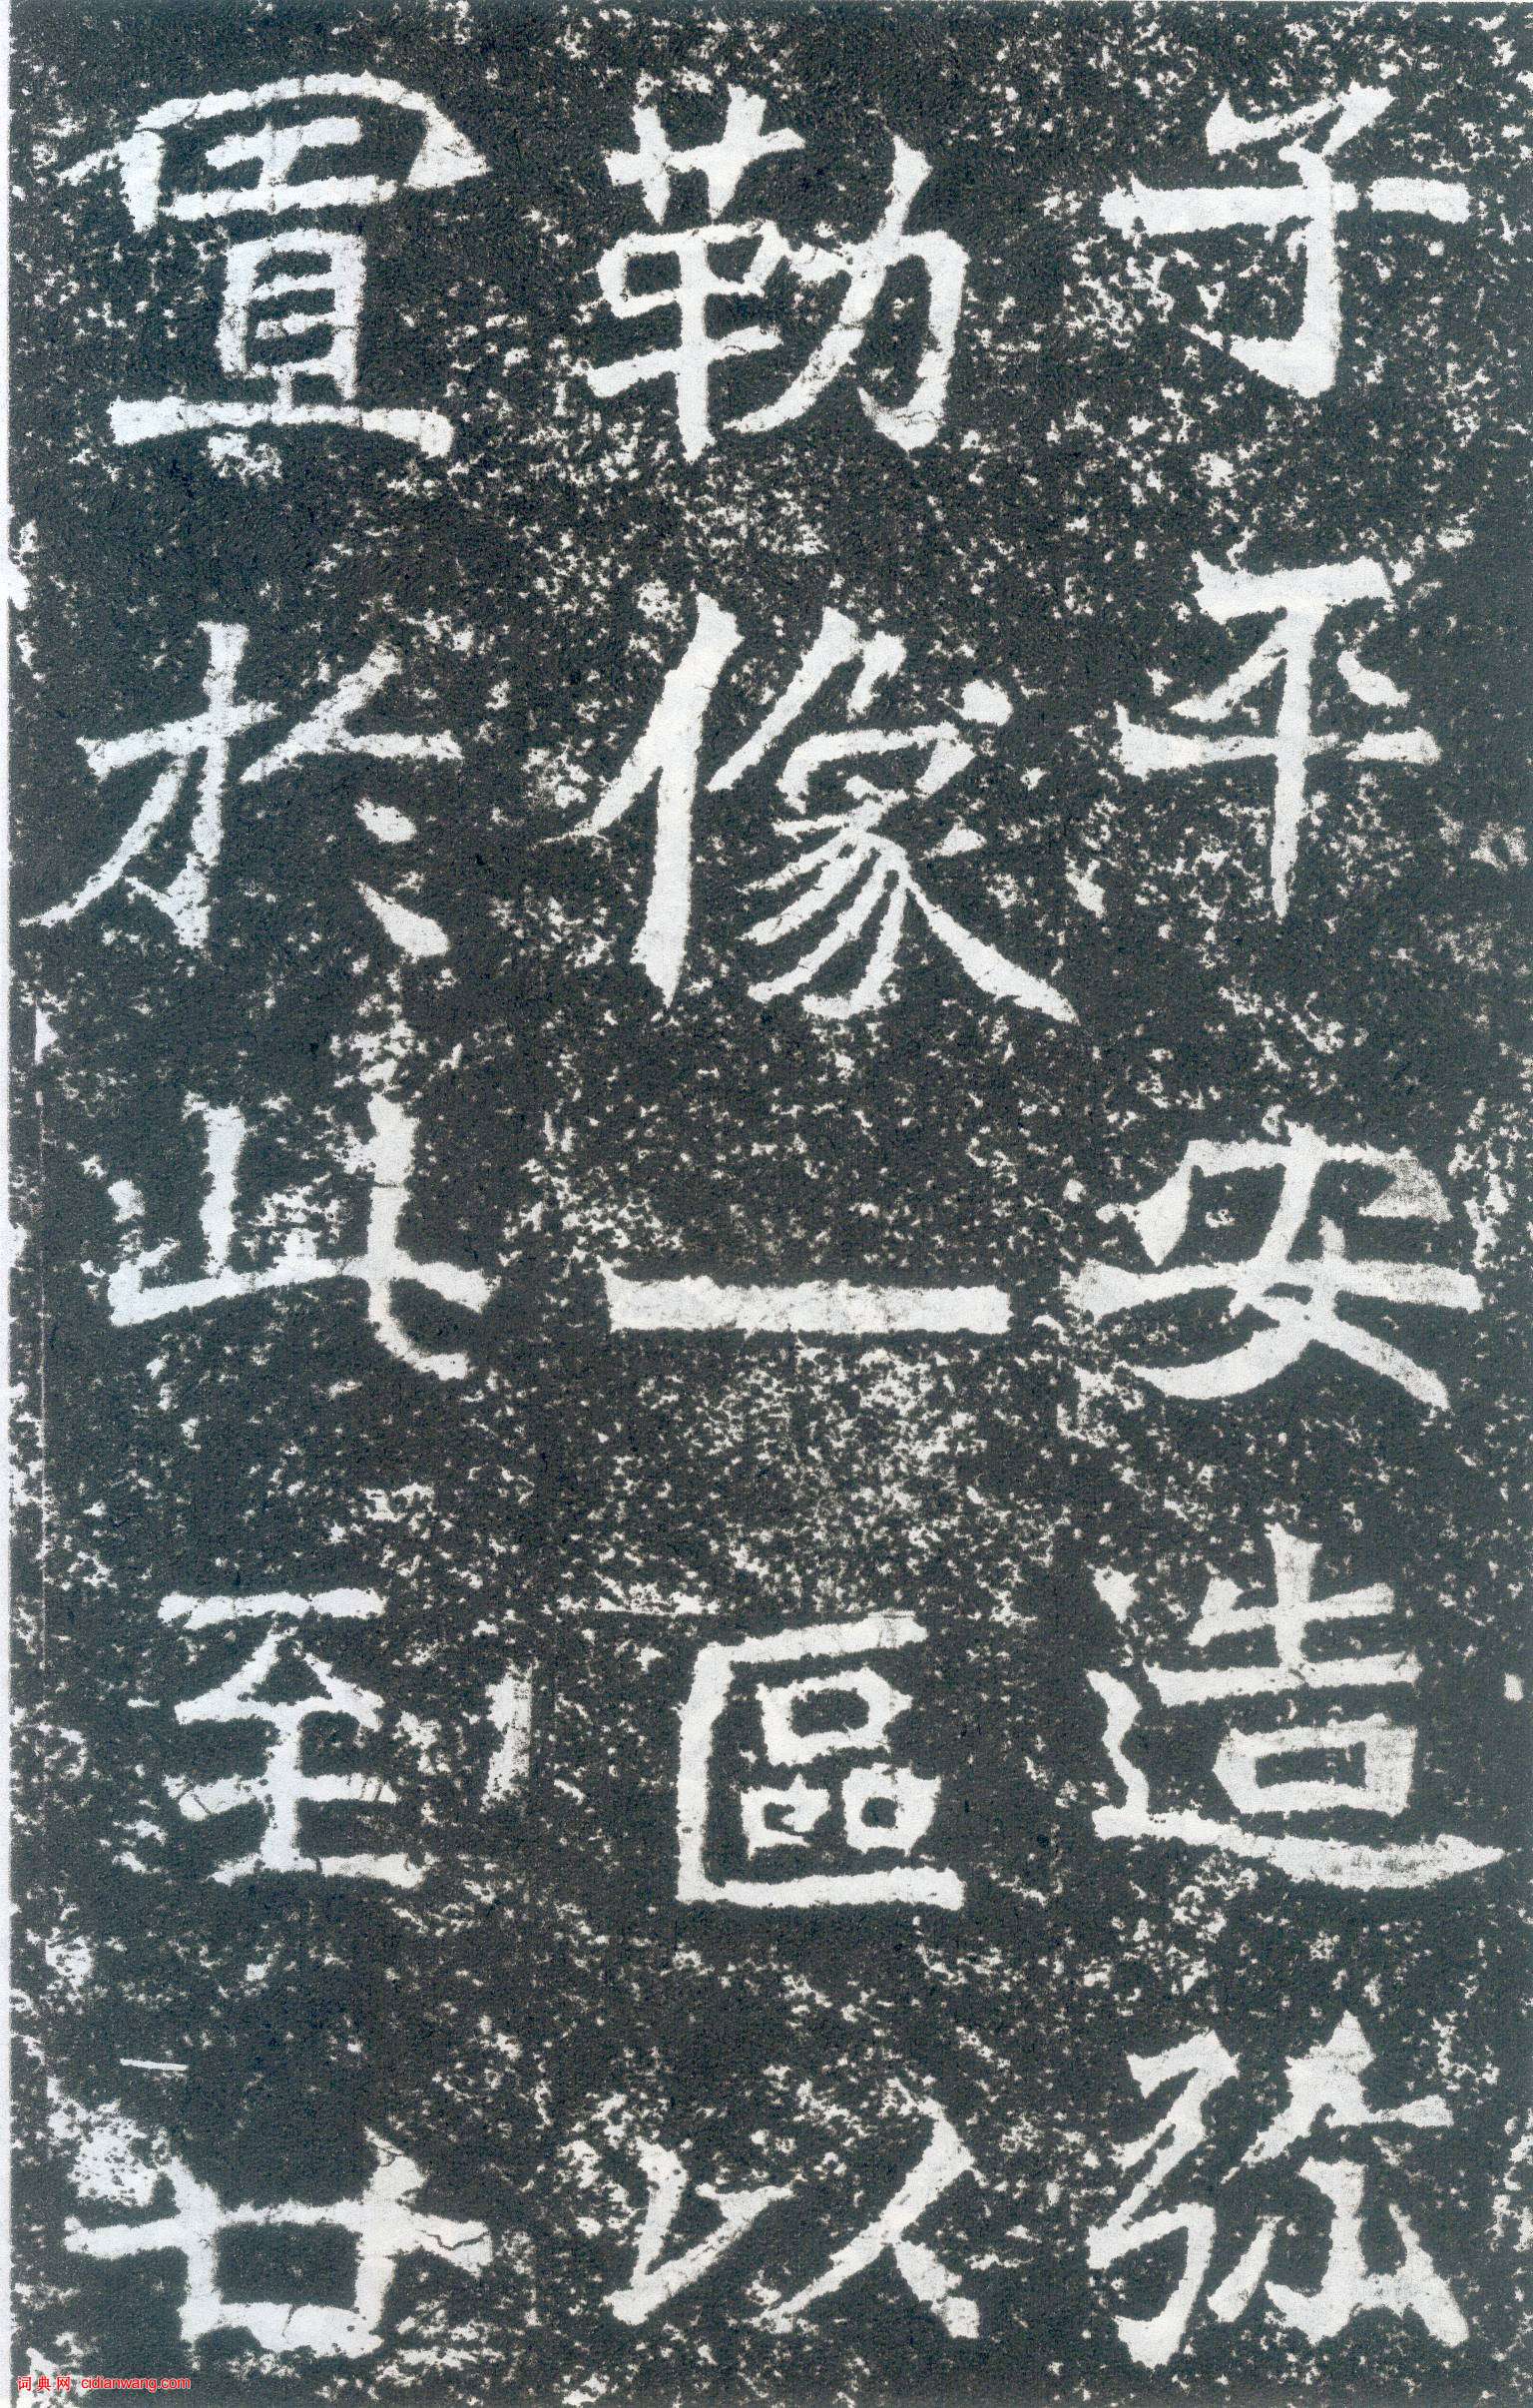 子平安造弥
勒像一區以
置於此至廿
词典网 cidianwang.com